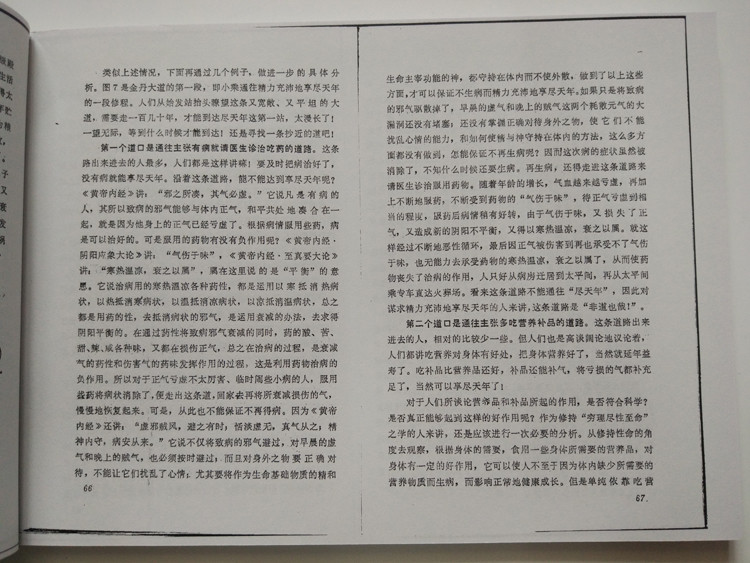 类似上述情况，下面再通过几个例子，做进一步的具体分
析。图7是金丹大道的第一段，即小乘通往精力充沛地享尽天年
的一段修程。人们从始发站抬头瞭望这条又宽敞、又平坦的大
道，需要走一百几十年，才能到达尽天年这第一站，太漫长了！
一望无际，等到什么时候才能到达！还是寻找一条抄近的道吧！
第一个道口是通往主张有病就请医生诊治吃药的道路。这条
路出来进去的人最多，人们都是这样讲嘛！要及时把病治好了，
没有病就能享尽天年。沿着这条道路，能不能达到享尽天年呢？
《黄帝内经》讲：“邪之所凑，其气必虚。”它说凡是有病的
人，其所以致病的邪气能够与体内正气，和平共处地凑合在一
起，就是因为他身上的正气已经亏虚了。根据病情服用些药，病
是可以治好的。可是服用的药物有没有负作用呢？《黄帝内经·
阴阳应象大论》讲：“气伤于味”，《黄帝内经·至真要大论》
讲：“寒热温凉，衰之以属”，属在这里说的是“平衡”的意
思。它说治病用的寒热温凉各种药性，都是运用以寒抵消热病
状，以热抵消寒病状，以温抵消凉病状，以凉抵消温病状，总之
都是用药的性，去抵消病状的邪气，是运用衰减的办法，去求得
阴阳平衡的。在通过药性将致病邪气衰减的同时，药的酸、苦、
甜、辣、咸各种味，又都在损伤正气，总之在治病的过程，是衰减
气的药性和伤害气的药味发挥作用的过程，这是利用药物治病的
负作用。所以对于正气亏虚不太厉害、临时闹些小病的人，服用
些药将病状消除了，便走出这条道，回家去再将所衰减损伤的气，
慢慢地恢复起来。可是，从此也不能保证不再得病。因为《黄帝
内经》还讲：“虚邪贼风，避之有时；恬淡虚无，真气从之；精
神内守，病安从来。”它说不仅将致病的邪气避过，对早晨的虚
气和晚上的贼气，也必须按时避过；而且对身外之物要正确对
待，不能让它们扰乱了心情；尤其要将作为生命基础物质的精和
66
生命主宰功能的神，都守持在体内而不使外散，做到了以上这些
方面，才可以保证不生病而精力充沛地享尽天年。如果只是将致病
的邪气驱散掉了，早晨的虚气和晚上的贼气这两个耗散元气的大
漏洞还没有堵塞；还没有掌握正确对待身外之物，使它们不能
扰乱心情的能力，和如何使精与神守持在体内的方法，这么多方
面都没有做到，怎能保证不再生病呢？因而这次病的症状虽然被
消除了，不知什么时候还要生病。再生病，还得走进这条道路来
请医生诊治服用药物。随着年龄的增长，气血越来越亏虚，再加
上不断地服药，不断受到药物的“气伤于味”，待正气亏虚到相
当的程度，服药后病情稍有好转，由于气伤于味，又损失了正
气，又造成新的阴阳不平衡，又得以寒热温凉，衰之以属。就这
样经过不断地恶性循环，最后因正气被伤害到再也承受不了气伤
于味，也无能力去承受药物的寒热温凉，衰之以属了，从而使药
物丧失了治病的作用，人只好从病房迁居到太平间，再从太平间
乘专车直达火葬场。看来这条道路不能通往“尽天年”，因此对
谋求精力充沛地享尽天年的人来讲，这条道路是“非道也哉！”。
第二个道口是通往主张多吃营养补品的道路。这条道路出来
进去的人，相对的比较少一些。但人们也是高谈阔论地议论着，
人们都讲吃营养对身体有好处，把身体营养好了，当然就延年益
寿了。吃补品比营养品还好，补品还能补气，将亏损的气都补充
足了，当然可以享尽天年了！
对于人们所谈论营养品和补品所起的作用，是否符合科学？
是否真正能够起到这样的好作用呢？作为修持“穷理尽性至命”
之学的人来讲，还是应该进行一次必要的分析。从修持性命的角
度去观察，根据身体的需要，食用一些身体所需要的营养品，对
身体有一定的好作用，它可以使人不至于因为体内缺少所需要的
营养物质而生病，而影响正常地健康成长。但是单纯依靠吃营
67